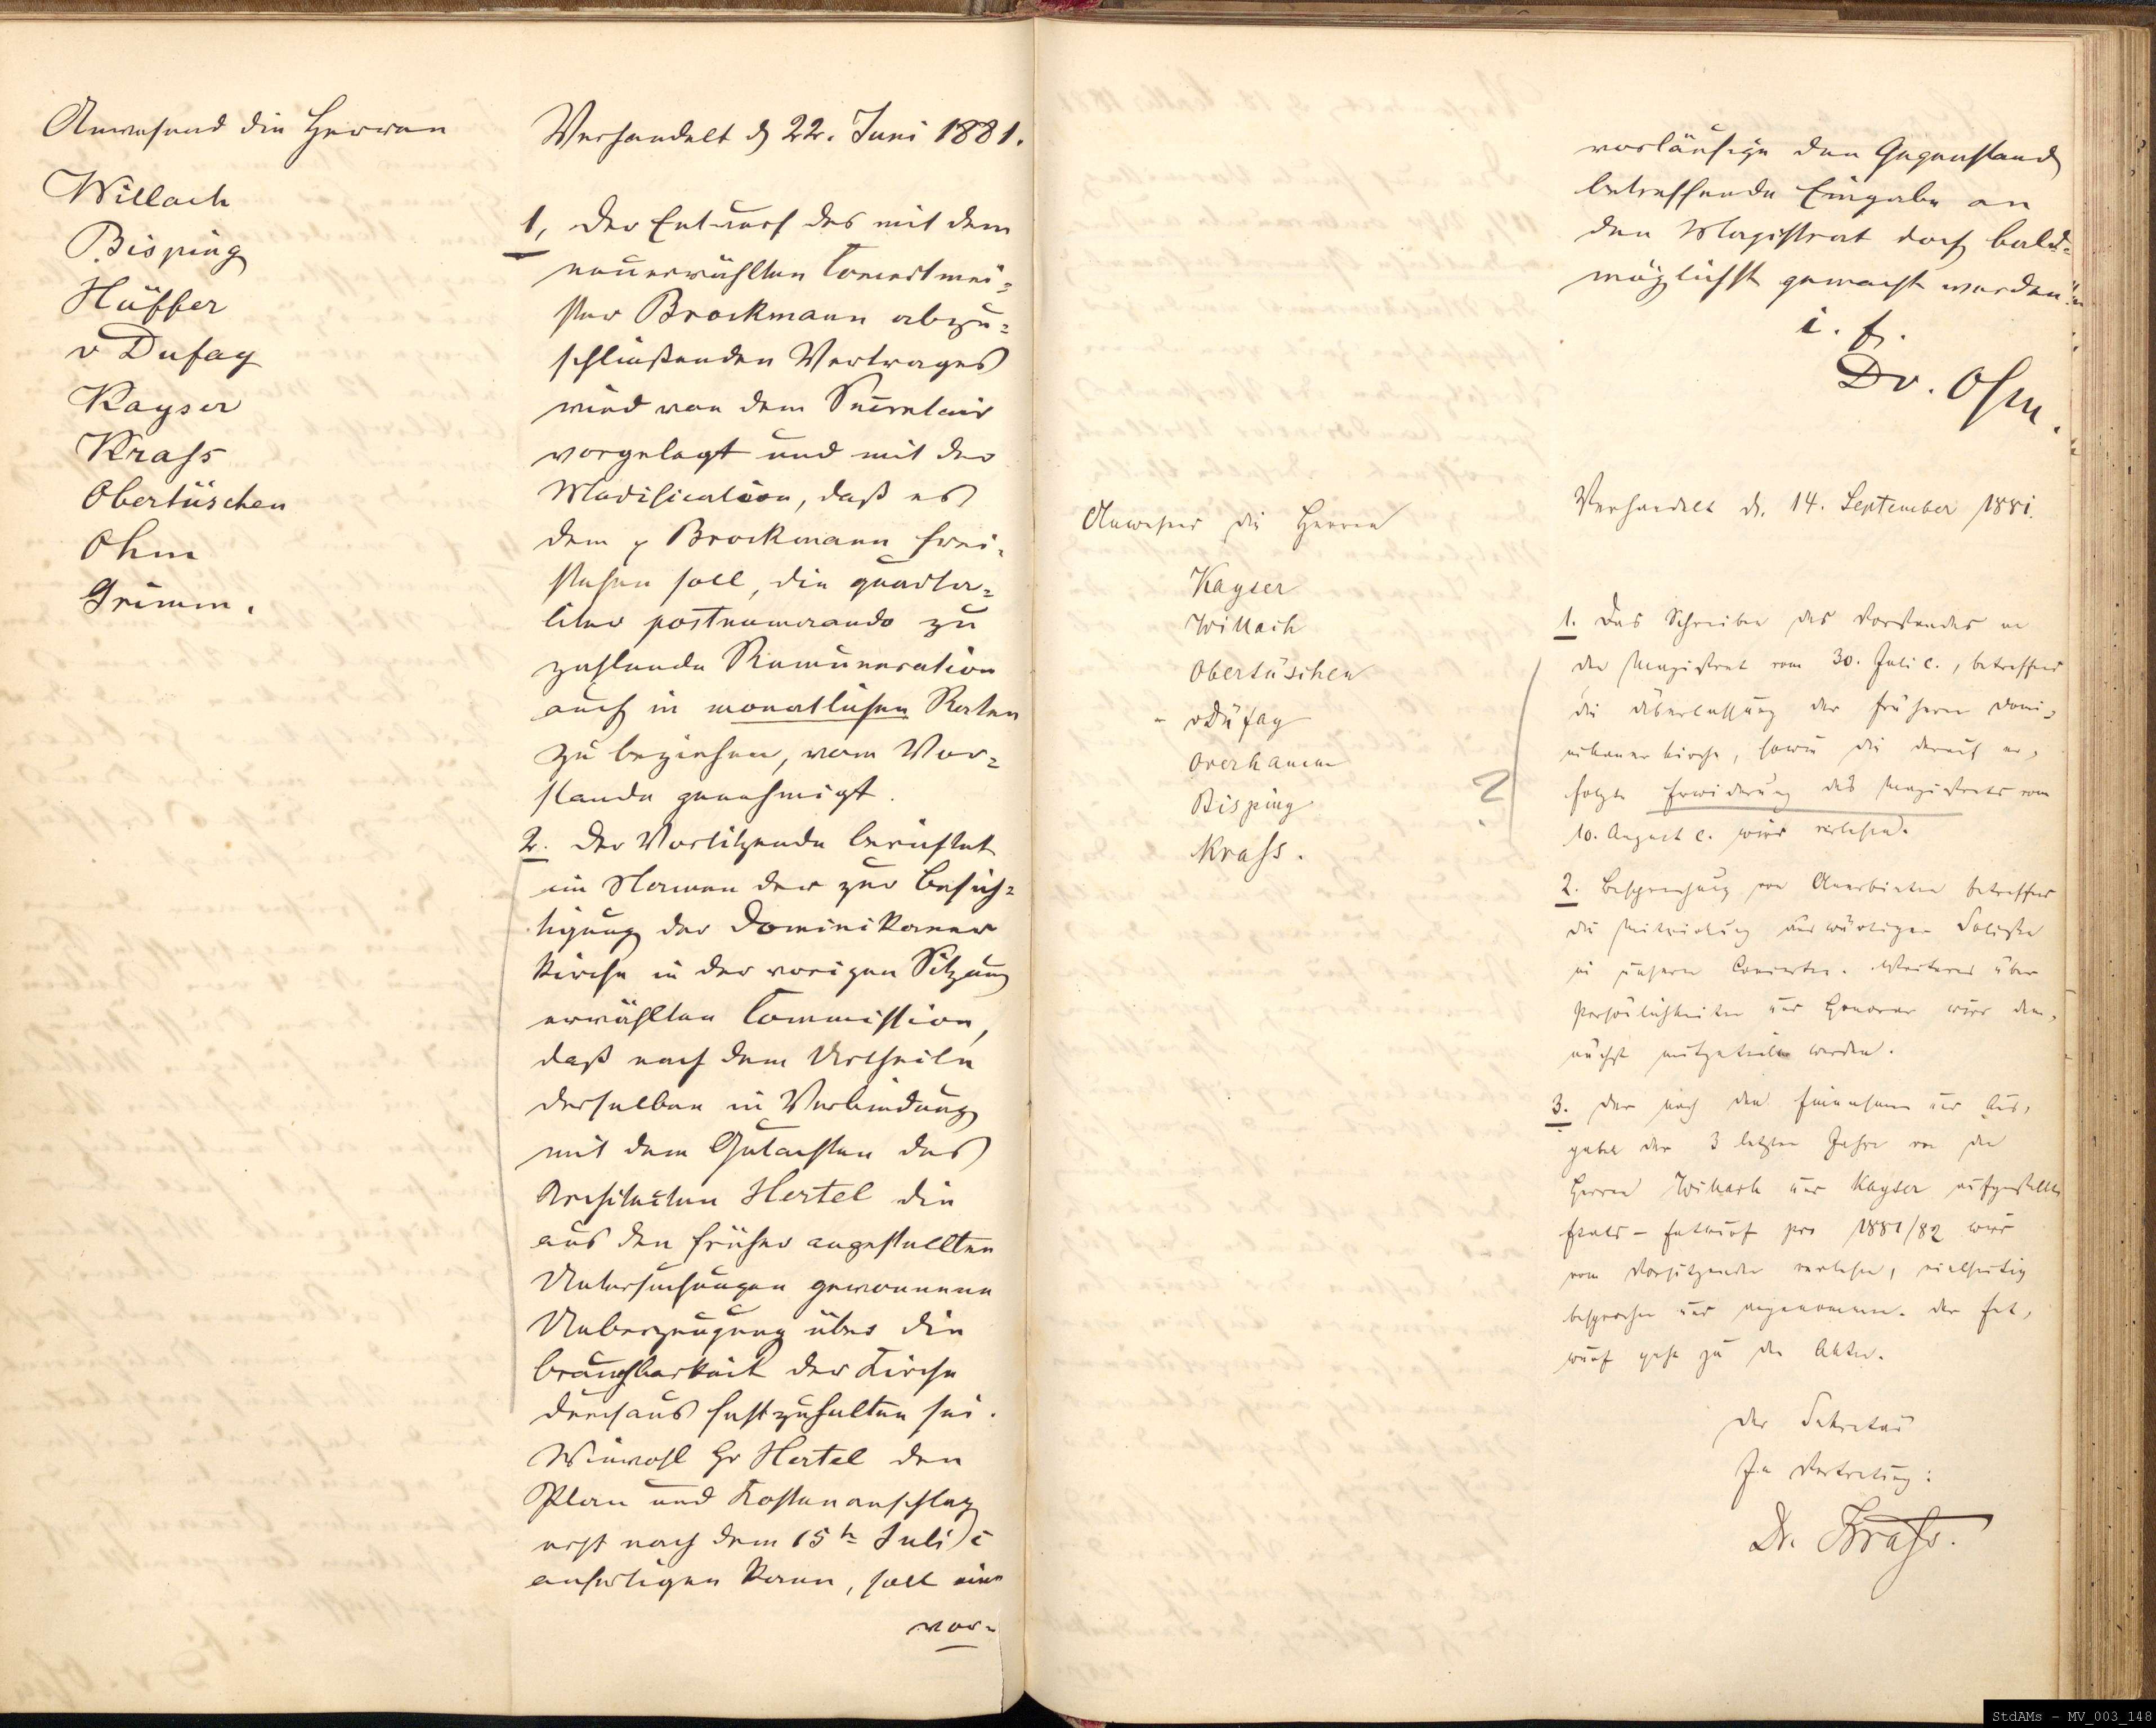 Anwesend die Herren
Willach
Bisping
Hüffer
v Dufay
Kayser
Krass
Obertüschen
Ohm
Grimm.
Verhandelt d 22. Juni 1881.
1, Der Entwurf des mit dem
neuerwählten Concertmei=
ster Brockmann abzu=
schließenden Vertrages
wird von dem Secretair
vorgelegt und mit der
Modification, daß es
dem p Brockmann frei=
stehen soll, die quarta=
liter postnumerando zu
zahlende Remuneration
auch in monatlichen Raten
zu beziehen, vom Vor=
stande genehmigt.
2. Der Vorsitzende berichtet
im Namen der zur Besich=
tigung der Dominikaner
Kirche in der vorigen Sitzung
erwählten Commission,
daß nach dem Urtheile
derselben in Verbindung
mit dem Gutachten des
Architecten Hertel die
aus den früher angestellten
Untersuchungen gewonnene
Ueberzeugung über die
Brauchbarkeit der Kirche
durchaus festzuhalten sei.
Wiewohl Hr Hertel den
Plan und Kostenanschlag
erst nach dem 15t Juli c
anfertigen kann, soll eine
vor=
vorläufige den Gegenstand
betreffende Eingabe an
den Magistrat doch bald=
möglichst gemacht werden.
i. f.
Dr. Ohm.
Anwesend die Herren
Kayser
Willach
Obertüschen
vDüfay
Overhamm
Bisping
Krass.
?
Verhandelt d. 14. September 1881.
1. Das Schreiben des Vorstandes an
den Magistrat vom 30. Juli c., betreffend
die Überlassung der frühern Domi=
nikanerkirche, sowie die darauf er=
folgte Erwiderung des Magistrats vom
10. August c. wird verlesen.
2. Besprechung von Anerbieten betreffend
die Mitwirkung auswärtiger Solisten
in unseren Concerten. Weiteres über
Persönlichkeiten und Honorar wird dem=
nächst mitgeteilt werden.
3. Der nach den Einnahmen und Aus=
gaben der 3 letzten Jahre von den
Herren Willach und Kayser aufgestellte
Etats-Entwurf pro 1881/82 wird
vom Vorsitzenden verlesen, vielseitig
besprochen und angenommen. Der Ent=
wurf geht zu den Akten.
Der Sekretär
In Vertretung:
Dr. Krass.
StdAMs - MV_003_148